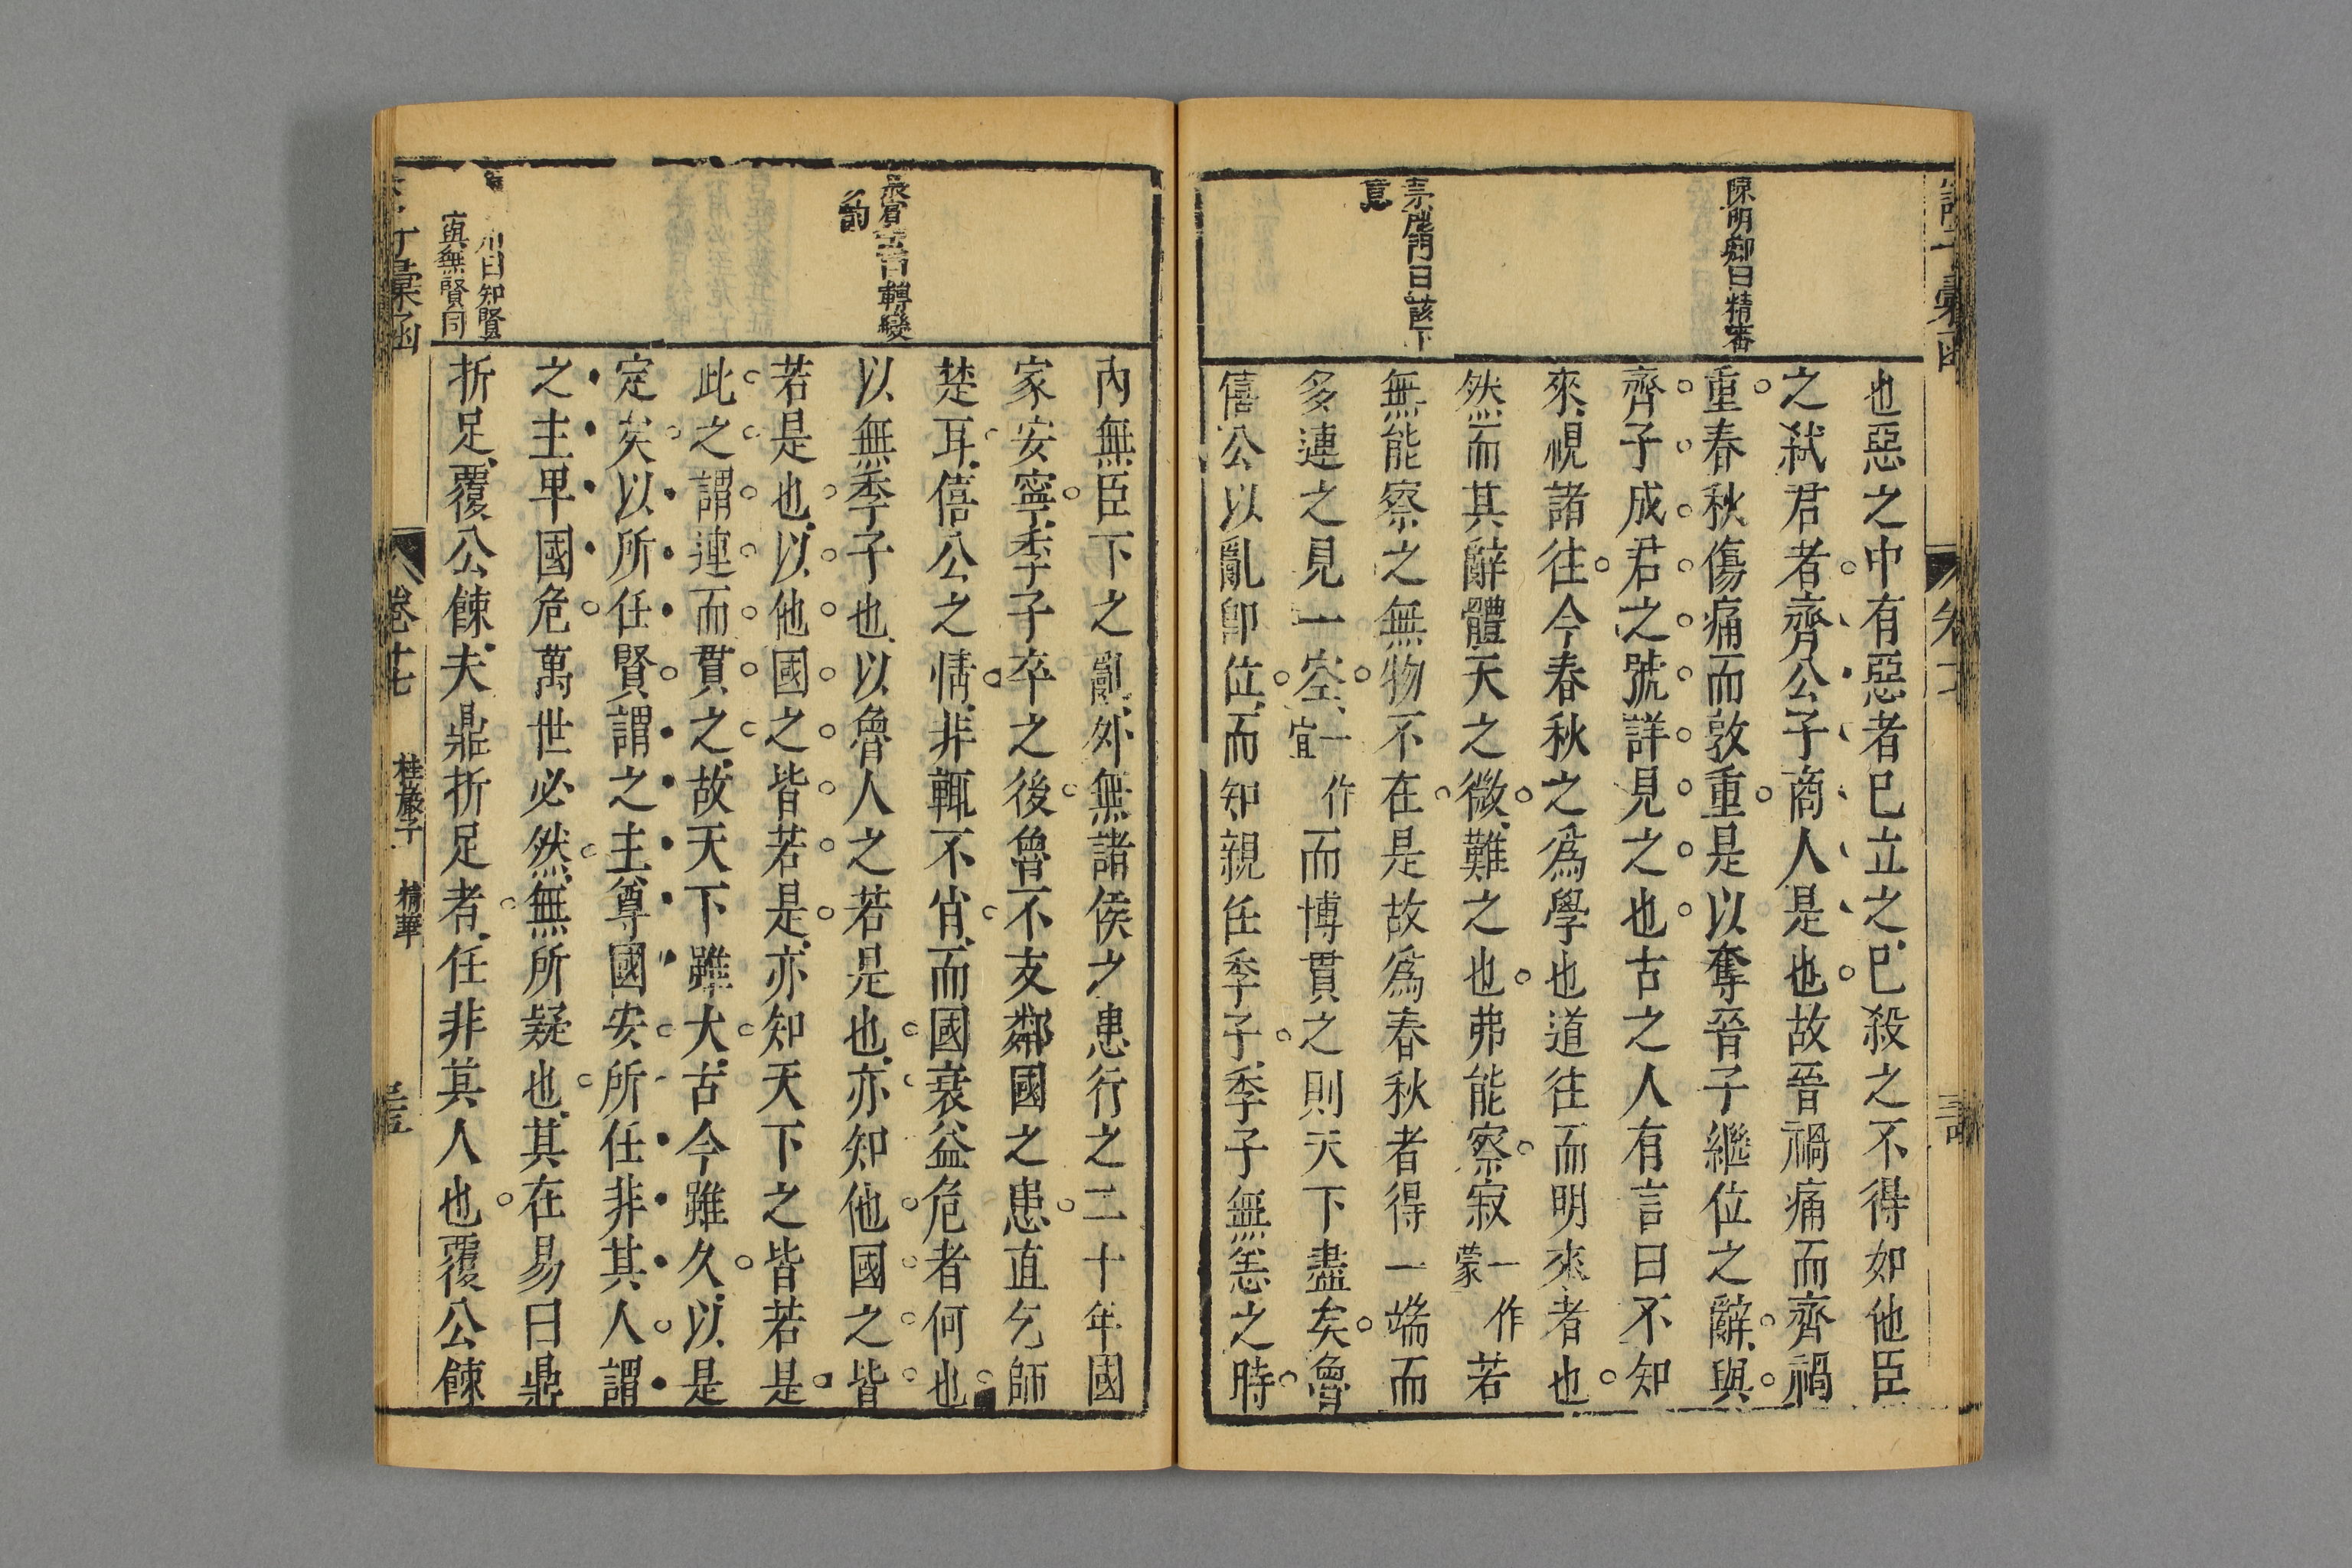 陳明卿曰精審
宗應門曰該下
意
也惡之中有惡者已立之已殺之不得如他臣
之弑君者齊公子商人是也故晉禍痛而齊禍
重春秋傷痛而敦重是以奪晉子繼位之辭與
齊子成君之號詳見之也古之人有言曰不知
來視諸往今春秋之爲學也道往而明來者也
然而其辭體天之微難之也弗能察寂一作蒙若
無能察之無物不在是故爲春秋者得一端而
多連之見一空一作宜而博貫之則天下盡矣魯
僖公以亂卽位而知親任季子季子無恙之時
言轉變
內無臣下之亂外無諸侯之患行之二十年國
家安寧季子卒之後魯不支鄰國之患直乞師
楚耳僖公之情非輒不肖而國衰益危者何也
以無季子也以魯人之若是也亦知他國之皆
若是也以他國之皆若是亦知天下之皆若是
此之謂連而貫之故天下雖大古今雖久以是
定矣以所任賢謂之主尊國安所任非其人謂
之主卑國危萬世必然無所疑也其在易曰鼎
折足覆公餗夫鼎折足者任非其人也覆公餗
曰知賢
與無賢同
彙函
卷十七
桂巖子
精華